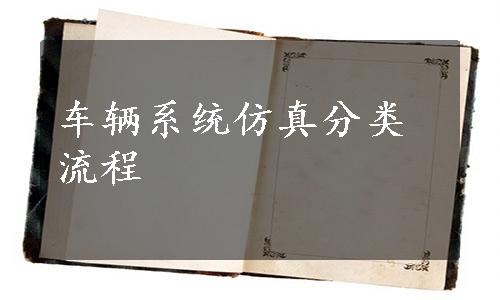 车辆系统仿真分类
流程